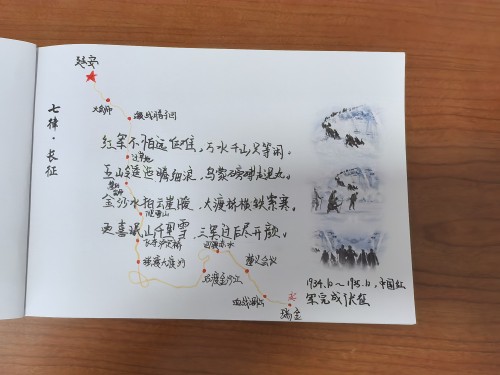 延安
七律·长征
大会师
激战腊子口
红军不怕远征难，万水千山只等闲。
过草地
五岭逶迤腾细浪，乌蒙磅礴走泥丸。
金沙水拍云崖暖，大渡桥横铁索寒。
爬雪山
更喜岷山千里雪，三军过后尽开颜。
飞夺泸定桥
四渡赤水
强渡大渡河
遵义会议
巧渡金沙江
血战湘江
瑞金
1934.10～1935.10，中国红
军完成长征